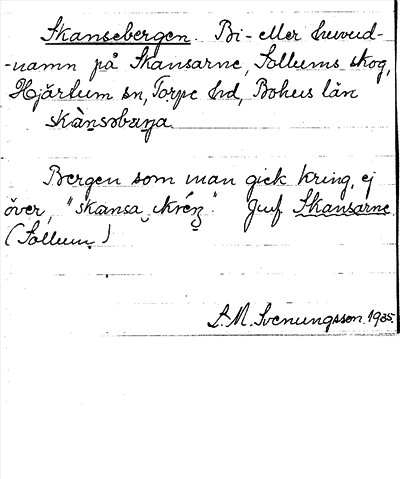 Skansebergen. Bi- eller huvud-
-namn på Skansarne, Sollums skog,
Hjärtum sn, Torpe hd, Bohus län
skànsəbæ̀rja
Bergen som man gick kring, ej
över, "skansa kréŋ". Jmf Skansarne
(Sollum)
S. M. Svenungsson 1935.